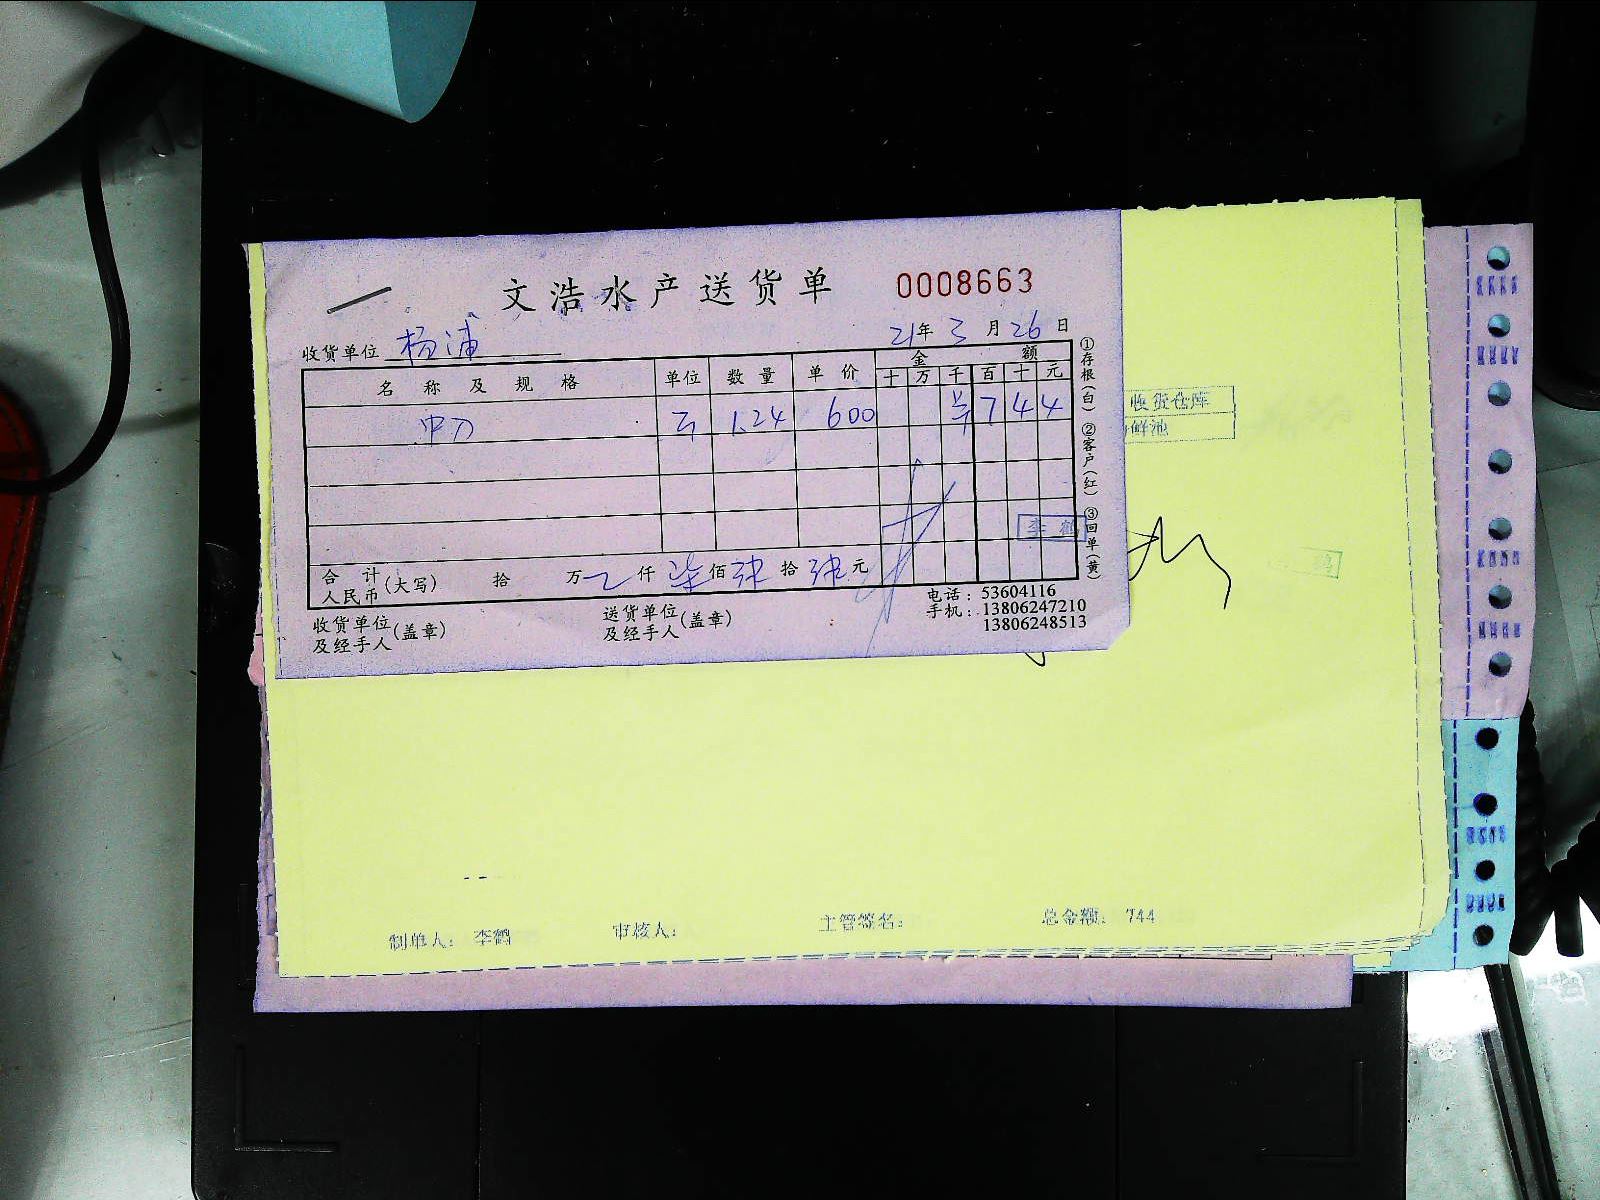 文浩水产送货单 0008663
收货单位 杨浦 21年3月26日
名称及规格 单位 数量 单价 金额
十 万 千 百 十 元
中刀 1.24 600 ¥ 7 4 4
合计人民币(大写) 拾 万 仟 柒 佰 肆 拾 肆 元
收货单位及经手人(盖章) 送货单位及经手人(盖章)
电话：53604116
手机：13806247210
13806248513
①存根(白) ②客户(红) ③回单(黄)
李鹤
收货仓库
海鲜池
鹤
制单人：李鹤 审核人： 主管签名： 总金额：744